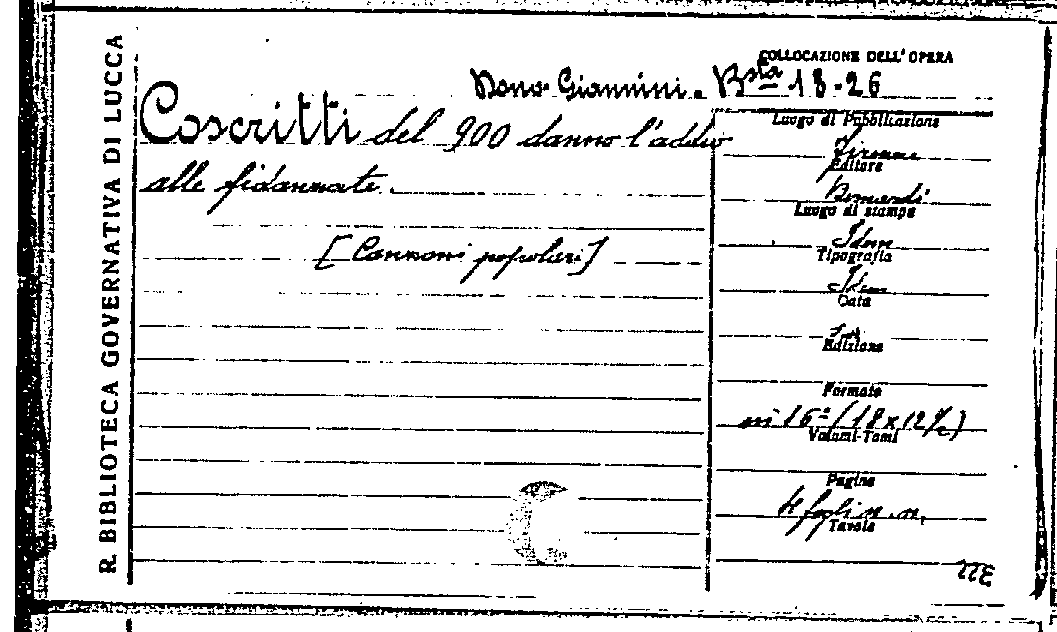 R. BIBLIOTECA GOVERNATIVA DI LUCCA
COLLOCAZIONE DELL'OPERA
Dono Giannini. Bsta 18-26
Coscritti del 900 danno l'addio
alle fidanzate.
[Canzoni popolari]
Luogo di Pubblicazione
Firenze
Editore
Luogo di stampa
Idem
Tipografia
Idem
Data
Edizione
Formato
in 16º (18 x 12 ½)
Volumi-Tomi
Pagine
4 fogli n. n.
Tavole